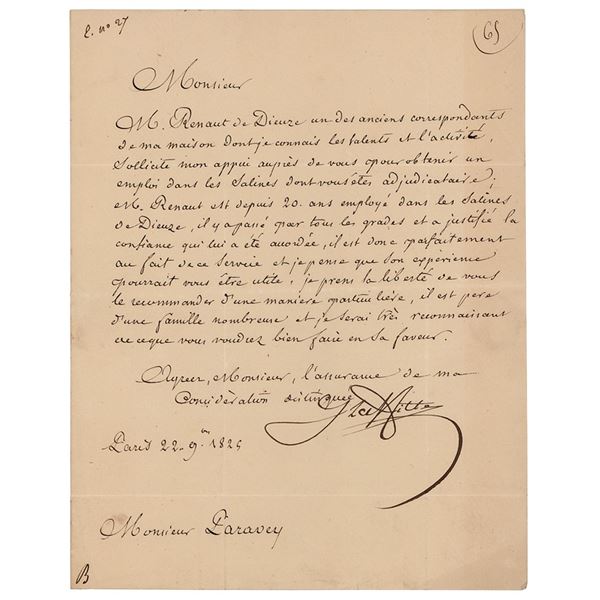 L. nº 27
65
Monsieur
M. Renaut de Dieuze un des anciens correspondants
de ma maison dont je connais les talents et l'activité,
sollicite mon appui auprès de vous pour obtenir un
emploi dans les Salines dont vous êtes adjudicataire;
M. Renaut est depuis 20. ans employé dans les Salines
de Dieuze, il y a passé par tous les grades et a justifié la
confiance qui lui a été accordée, il est donc parfaitement
au fait de ce service et je pense que son expérience
pourrait vous être utile; je prens la liberté de vous
le recommander d'une maniere particulière, il est pere
d'une famille nombreuse et je serai très reconnaissant
de ce que vous voudrez bien faire en sa faveur.
Agréez, Monsieur, l'assurance de ma
Considération distinguée
J Laffitte
Paris 22. 9.bre 1825
Monsieur Paravey
B